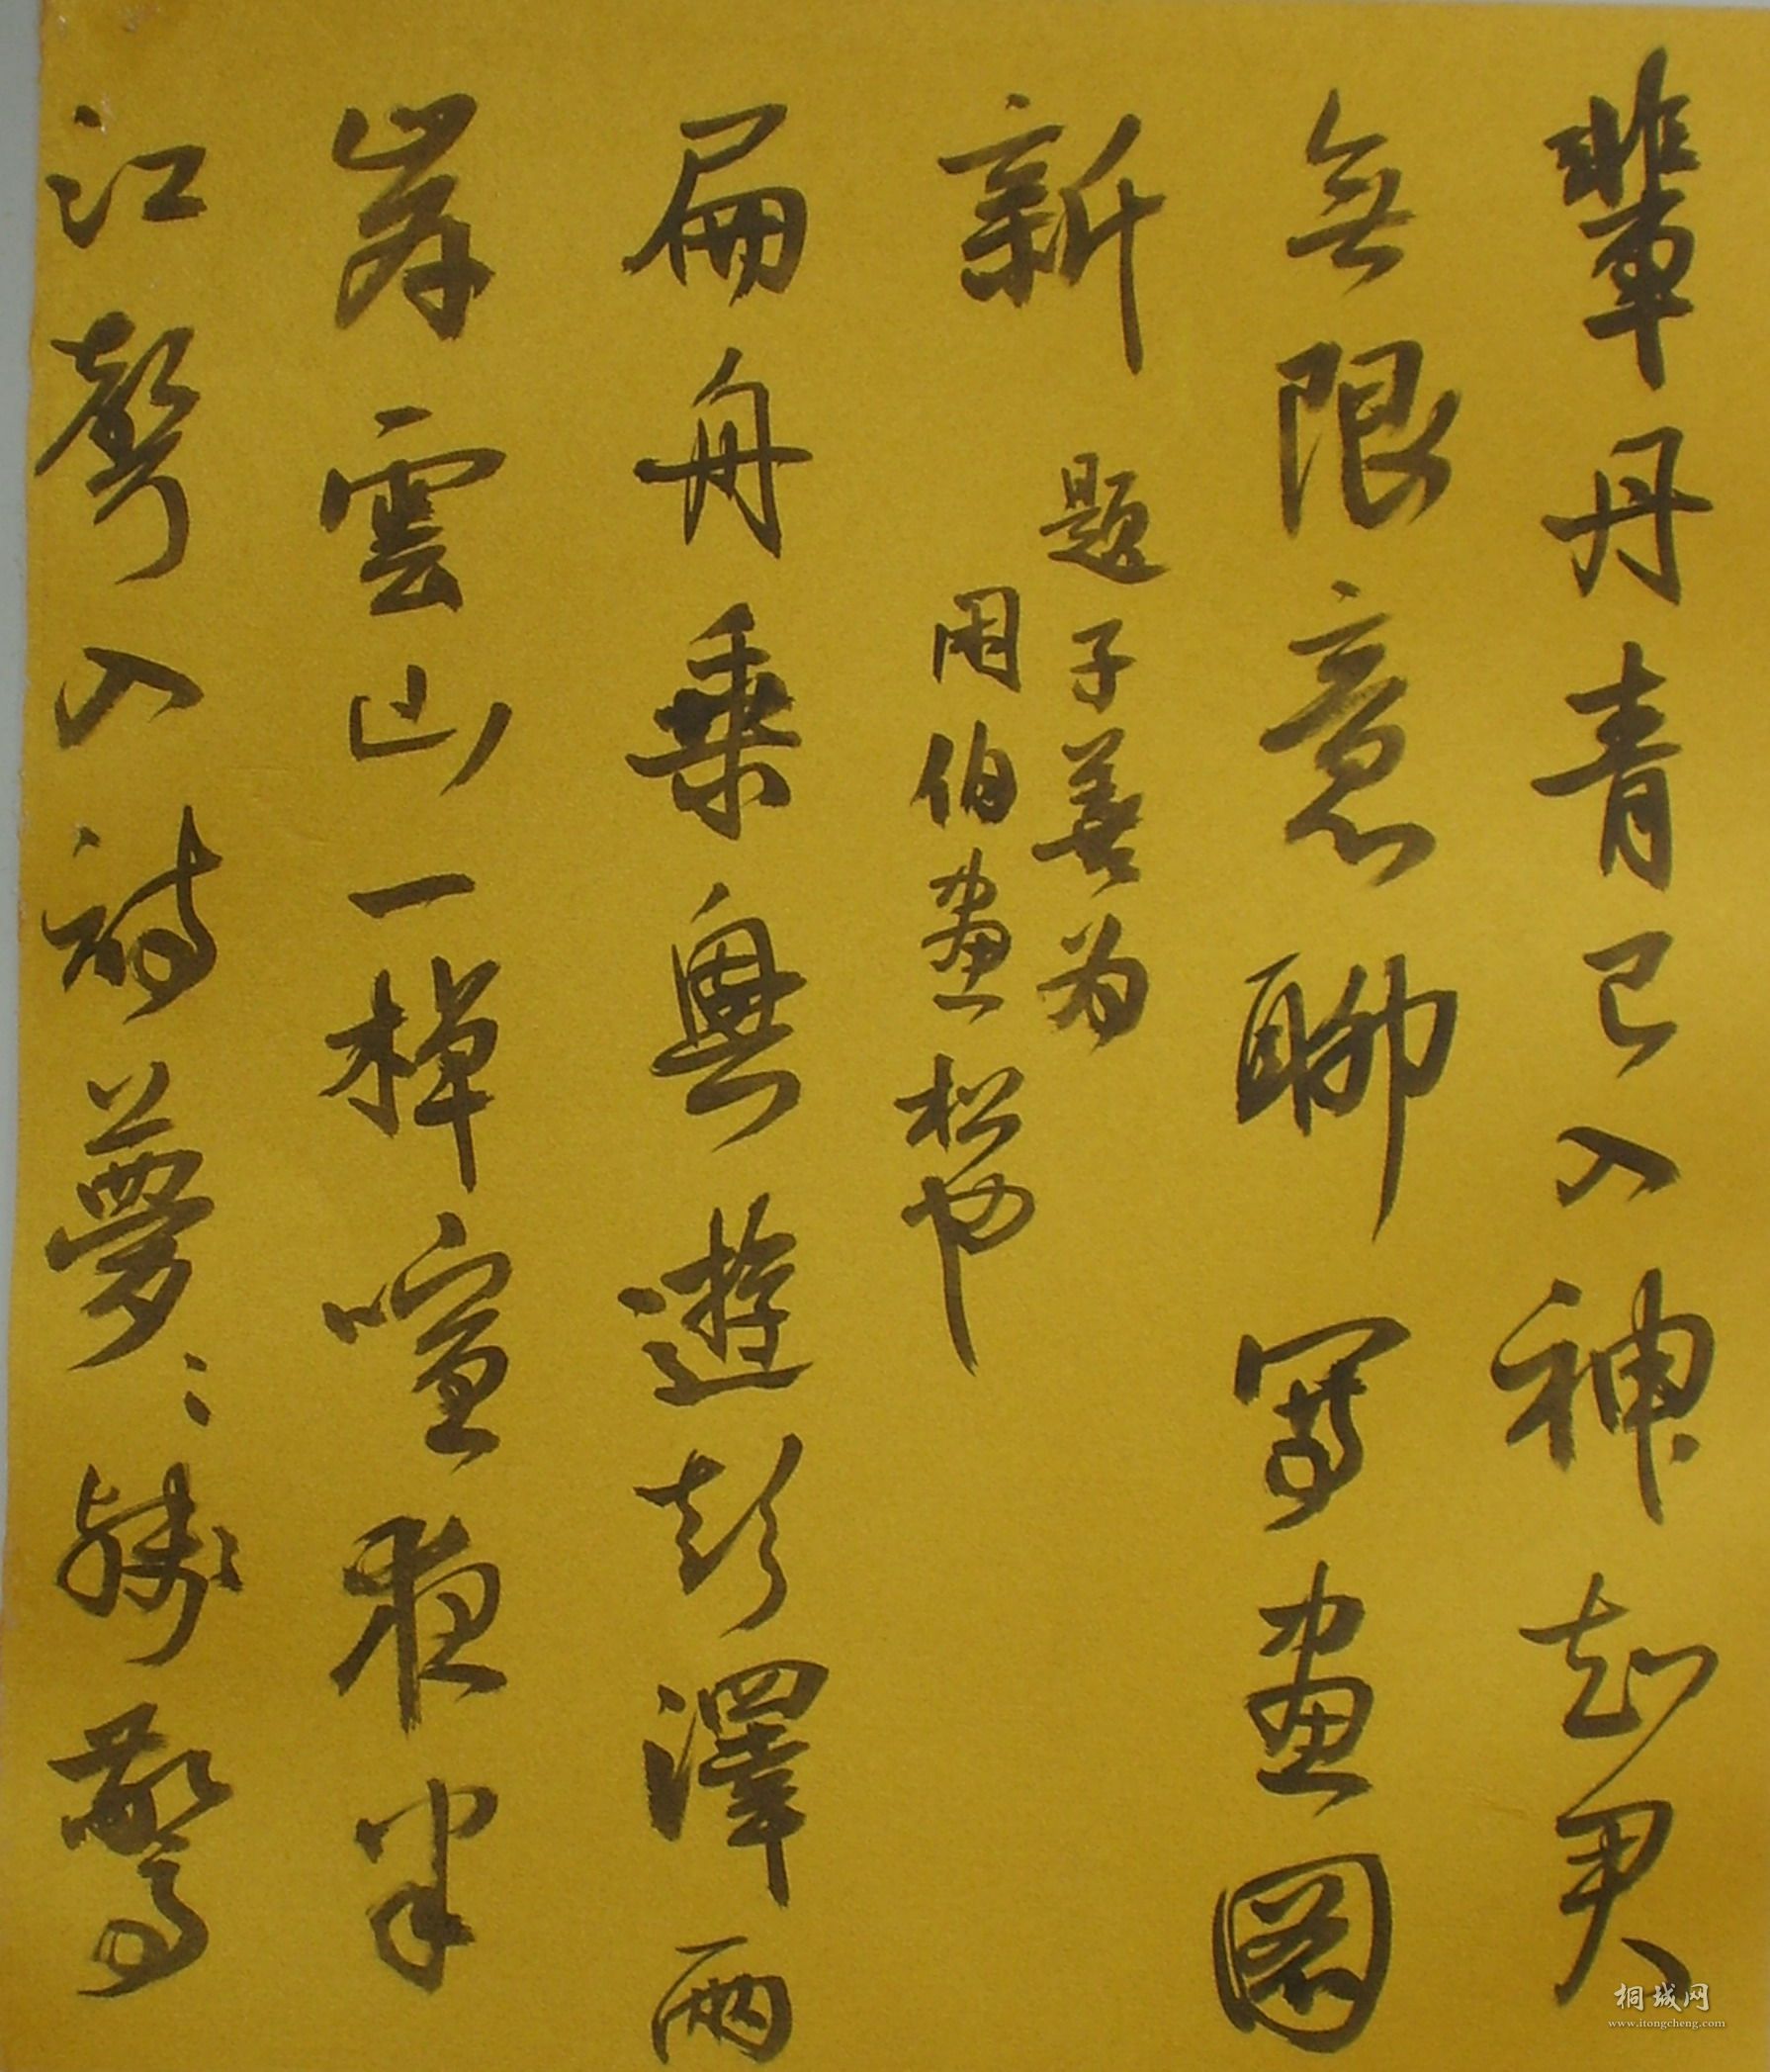 輩丹青已入神知君
無限意聊寫畫圖
新
題子善為
用伯畫松也
扁舟乘興遊彭澤兩
岸雲山一棹喧夜半
江聲入詩夢＝殘驚
桐城网
www.itongcheng.com